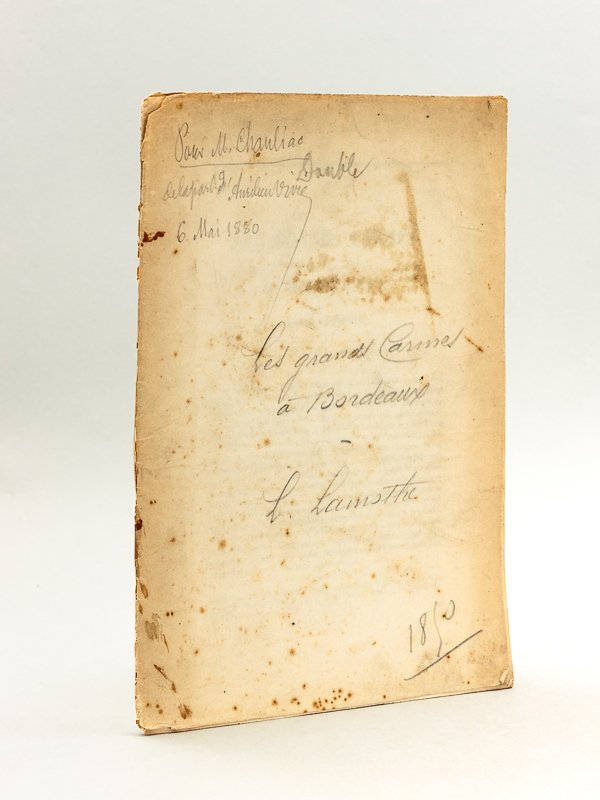 Pour M. Chauliac
Double
de la part d'Aurélien Vivie
6 Mai 1880
Les grands Carmes
à Bordeaux
-
L. Lamothe
1850